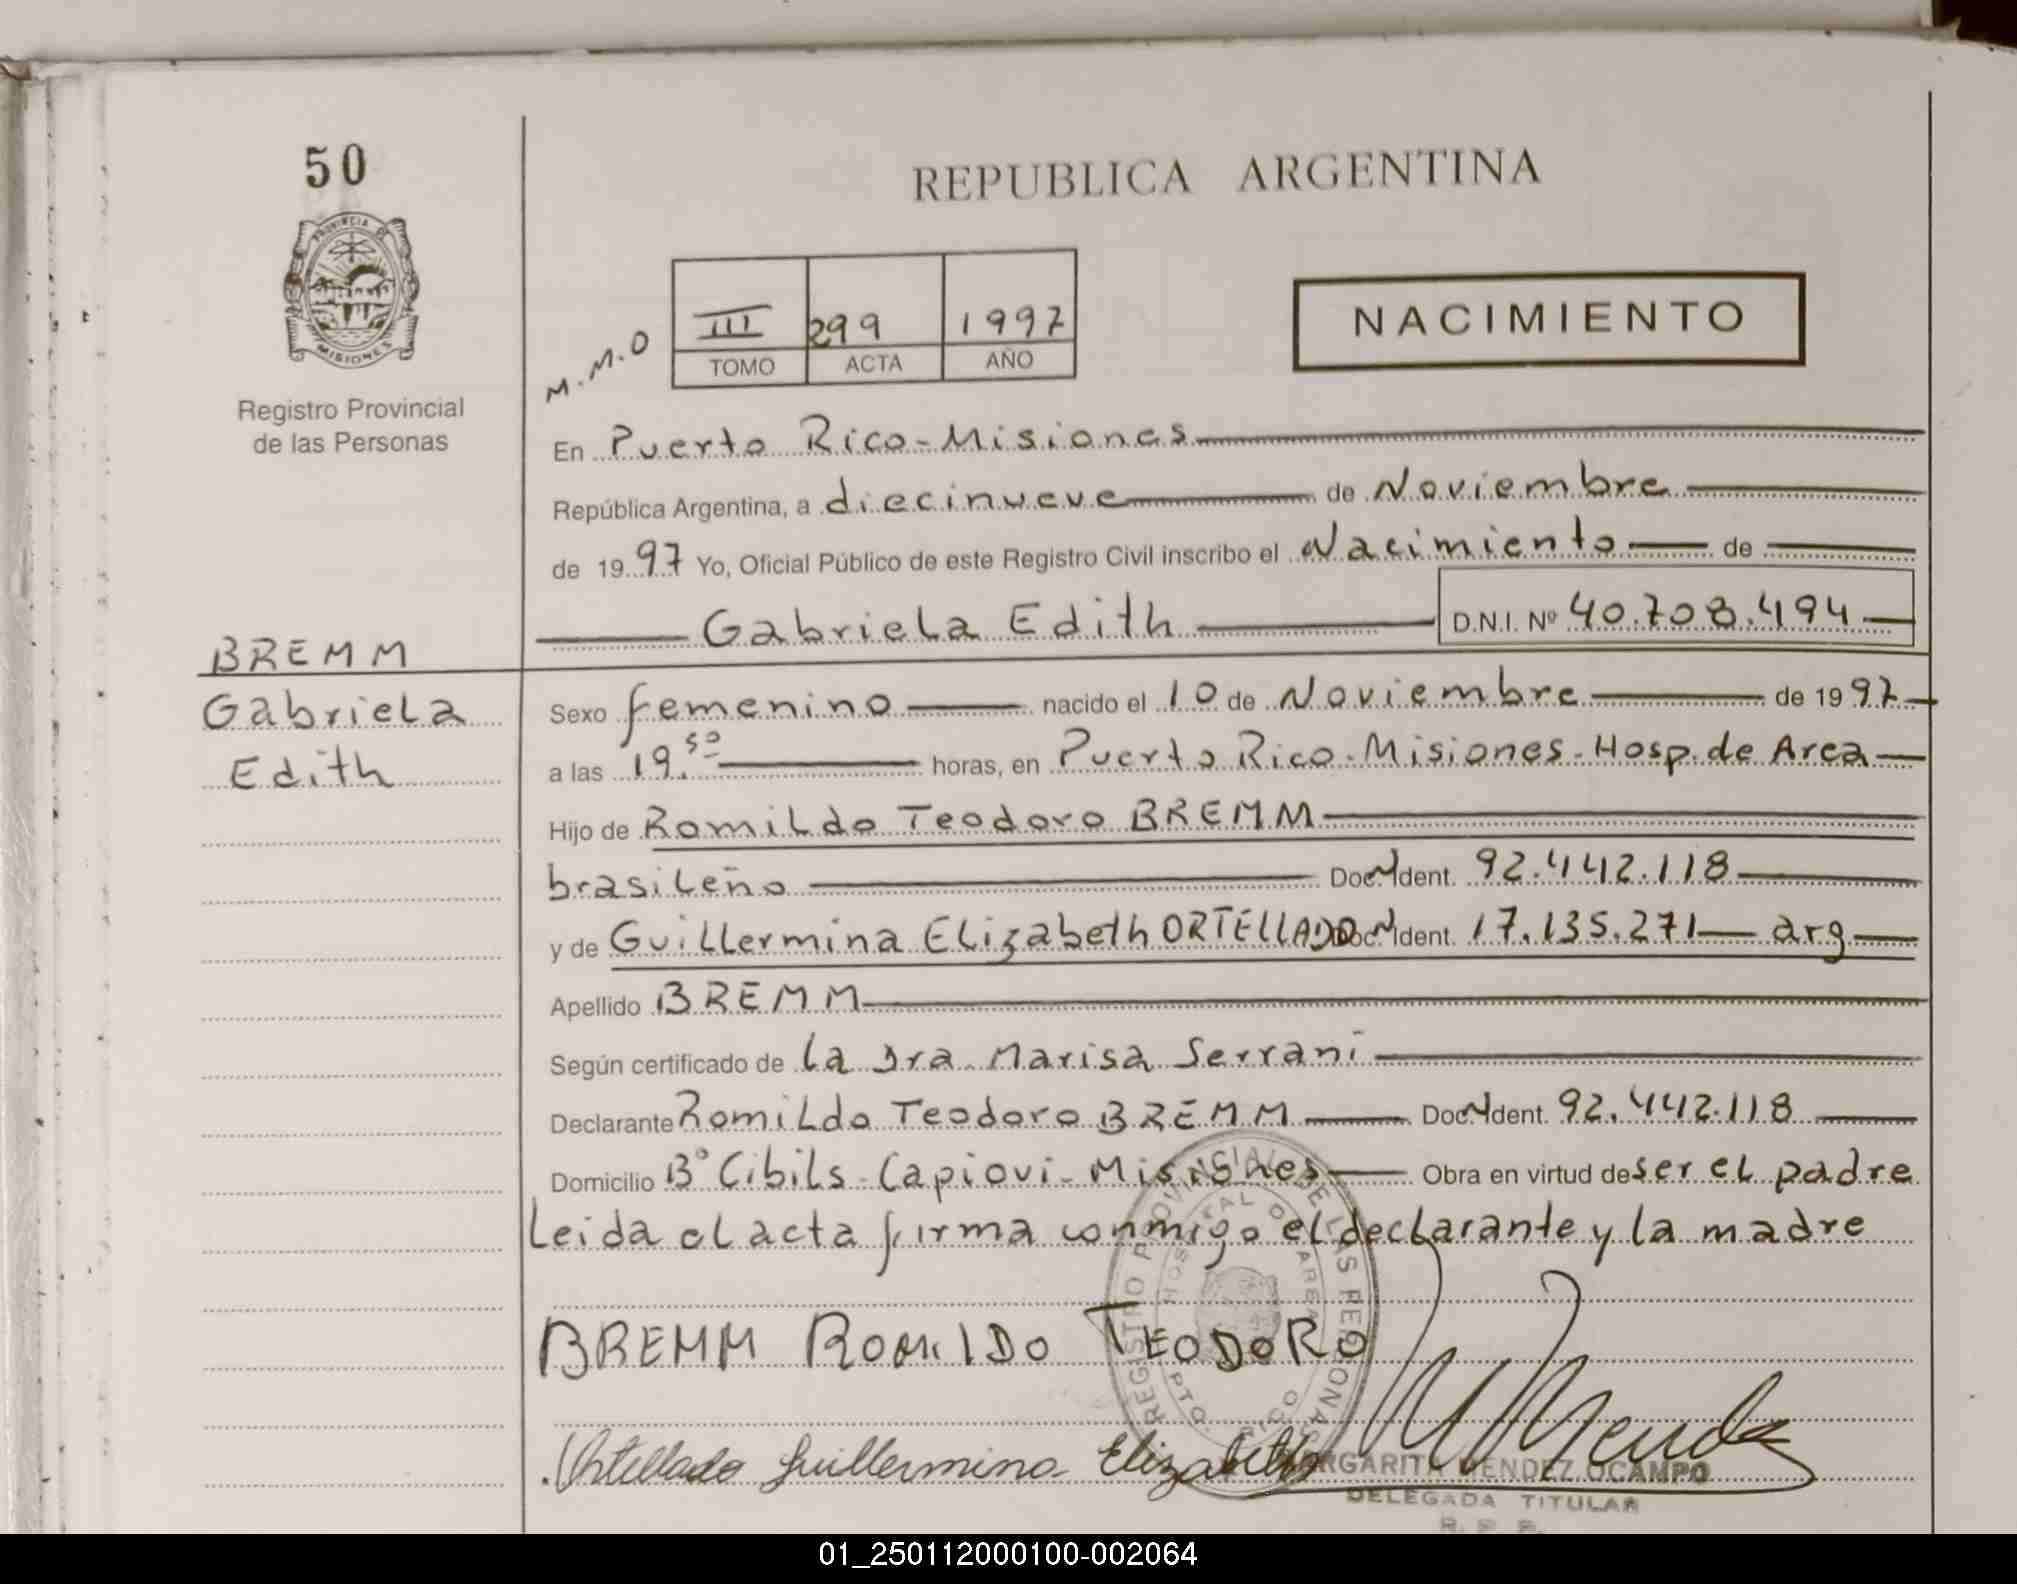 50
REPUBLICA ARGENTINA
PROVINCIA DE
MISIONES
Registro Provincial
de las Personas
M.M.O
III 299 1997
TOMO ACTA AÑO
NACIMIENTO
En Puerto Rico-Misiones
República Argentina, a diecinueve de Noviembre
de 1997 Yo, Oficial Público de este Registro Civil inscribo el Nacimiento de
Gabriela Edith D.N.I. Nº 40.708.494
BREMM
Gabriela
Edith
Sexo femenino nacido el 10 de Noviembre de 1997
a las 19.50 horas, en Puerto Rico-Misiones-Hosp.de Area
Hijo de Romildo Teodoro BREMM
brasileño Doc. Ident. 92.442.118
y de Guillermina Elizabeth ORTELLADO Doc. Ident. 17.135.271 arg
Apellido BREMM
Según certificado de la Dra. Marisa Serrani
Declarante Romildo Teodoro BREMM Doc. Ident. 92.442.118
Domicilio Bº Cibils-Capiovi-Misiones Obra en virtud de ser el padre
Leida el acta firma conmigo el declarante y la madre
REGISTRO PROVINCIAL DE LAS PERSONAS
HOSPITAL DE AREA
PTO. RICO
BREMM ROMILDO TEODORO
Ortellado Guillermina Elizabeth
M Mendez
MARGARITA MENDEZ OCAMPO
DELEGADA TITULAR
R. P. P.
01_250112000100-002064